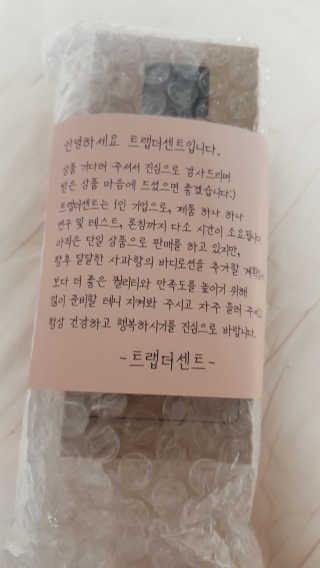 안녕하세요 트랩더센트입니다.
상품 기다려 주셔서 진심으로 감사드리며
받은 상품 마음에 드셨으면 좋겠습니다:)
트랩더센트는 1인 기업으로, 제품 하나 하나
연구 및 테스트, 론칭까지 다소 시간이 소요됩니다
아직은 단일 상품으로 판매를 하고 있지만,
향후 달달한 사과향의 바디로션을 추가할
보다 더 좋은 퀄리티와 만족도를 높이기 위해
많이 준비할 테니 지켜봐 주시고 자주 들러
항상 건강하고 행복하시기를 진심으로 바랍니다.
~트랩더센트~